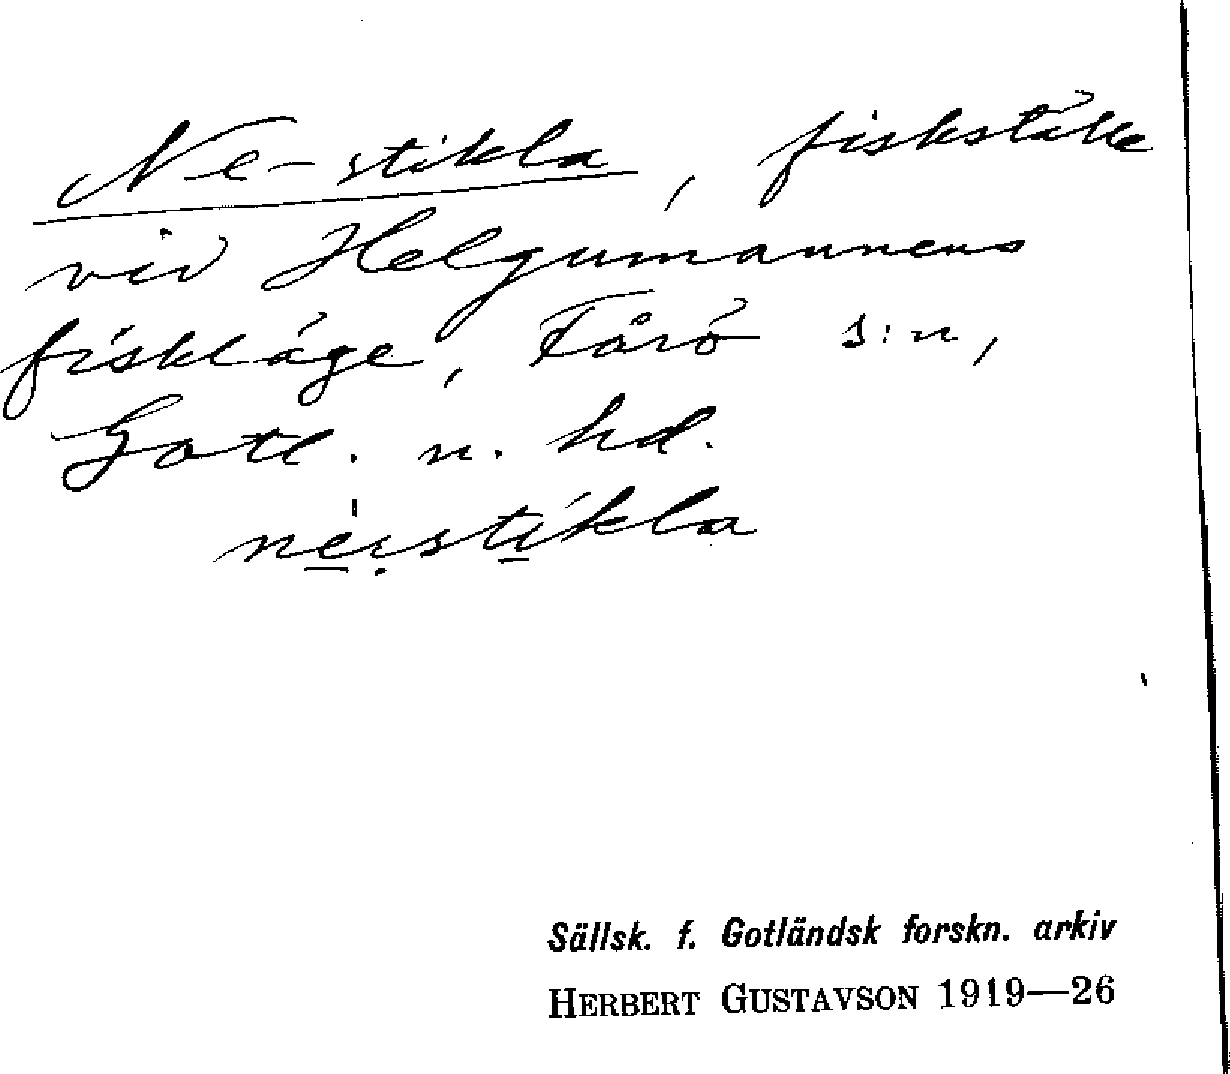 Ne-stikla, fiskställe
vid Helgumannens
fiskläge, Fårö s:n,
Gotl. n. hd.
nei̯stikla
Sällsk. f. Gotländsk forskn. arkiv
HERBERT GUSTAVSON 1919—26